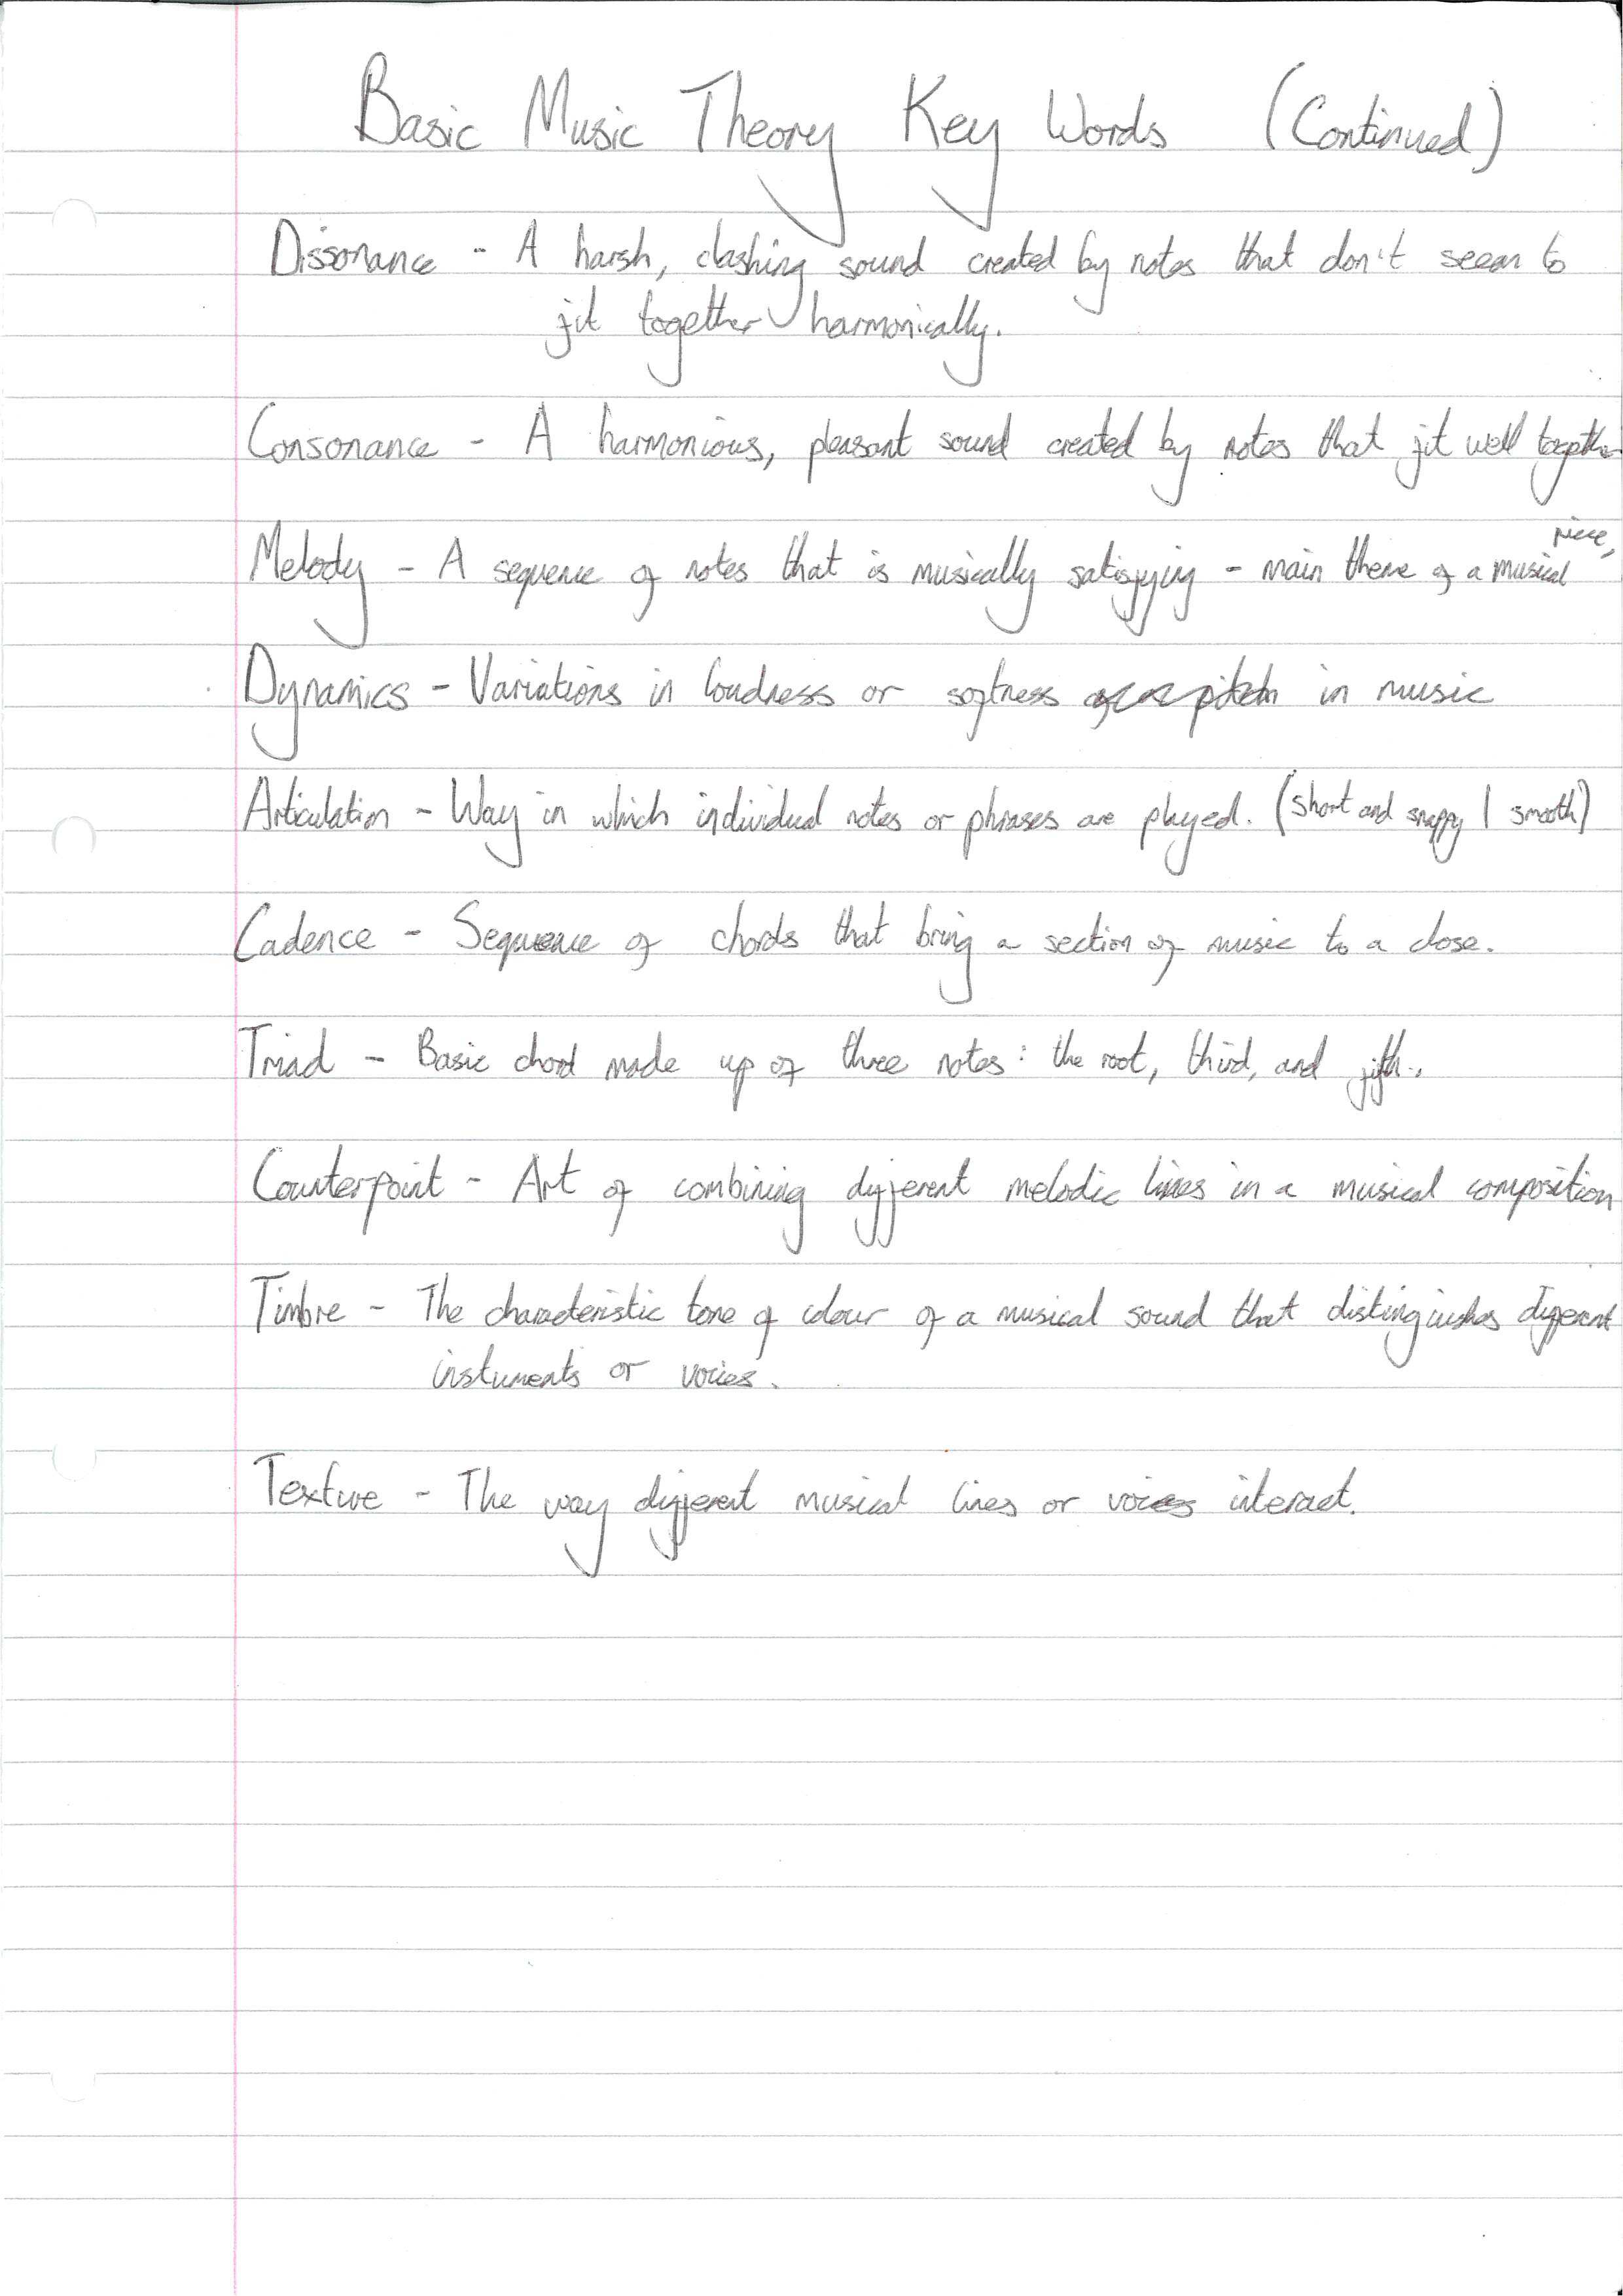 Basic Music Theory Key Words (Continued)
Dissonance - A harsh, clashing sound created by notes that don't seem to
fit together harmonically.
Consonance - A harmonious, pleasant sound created by notes that fit well together
Melody - A sequence of notes that is musically satisfying - main theme of a musical piece,
Dynamics - Variations in loudness or softness in music
Articulation - Way in which individual notes or phrases are played. (short and snappy | smooth)
Cadence - Sequence of chords that bring a section of music to a close.
Triad - Basic chord made up of three notes: the root, third, and fifth.
Counterpoint - Art of combining different melodic lines in a musical composition
Timbre - The characteristic tone of colour of a musical sound that distinguishes different
instuments or voices.
Texture - The way different musical lines or voices interact.